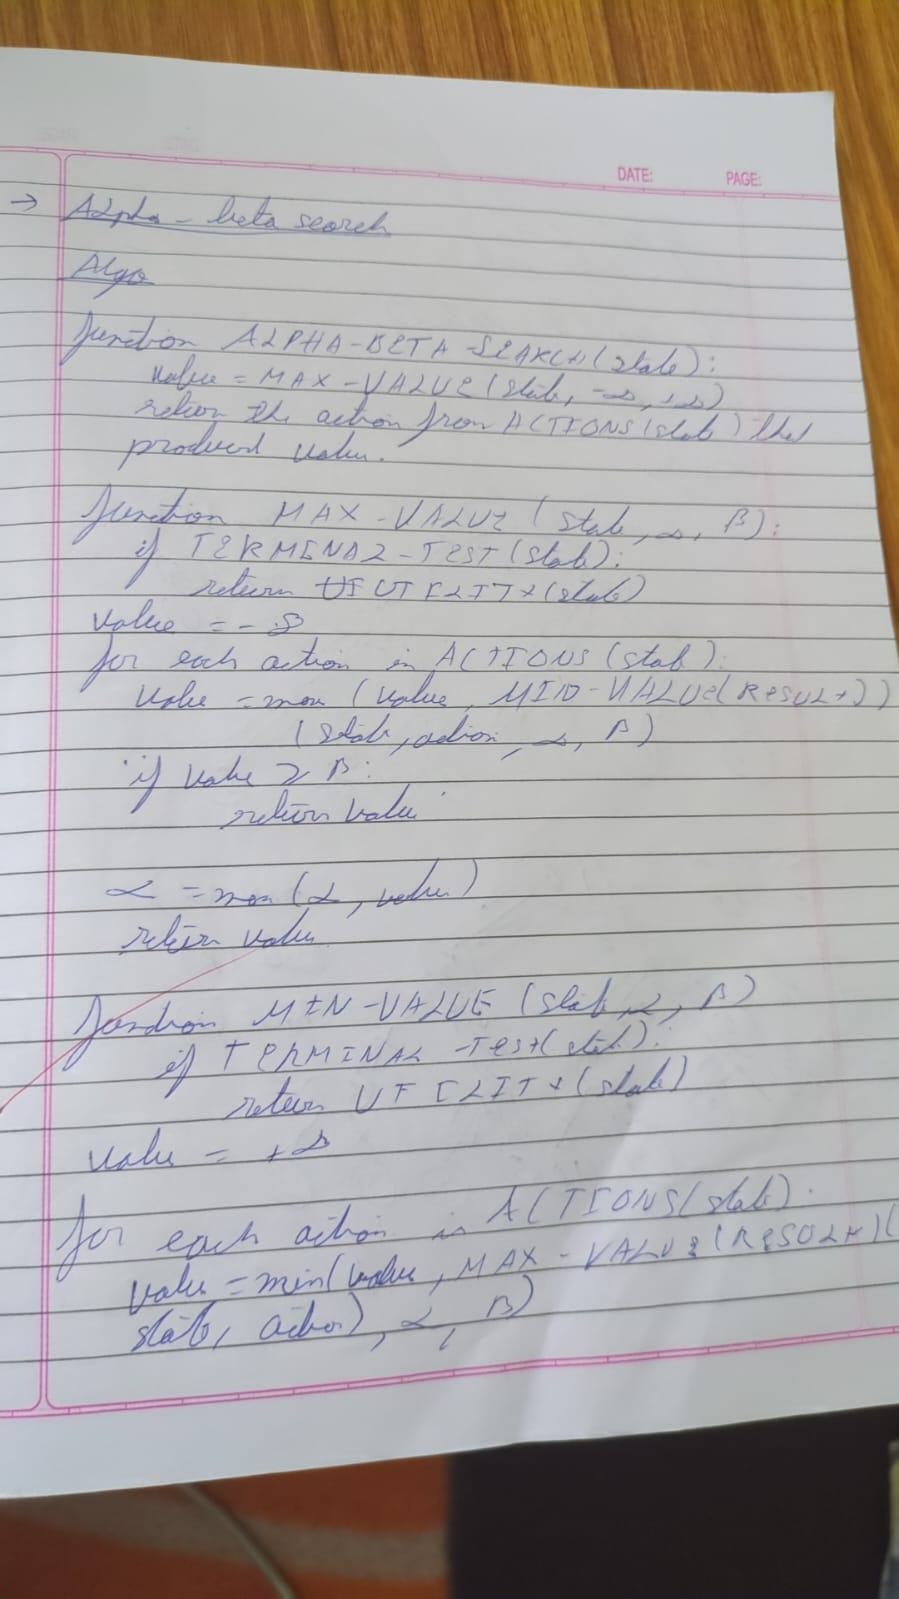 DATE: PAGE:
→ Alpha - beta search
Algo
function ALPHA-BETA-SEARCH(state):
value = MAX-VALUE(state, -∞, +∞)
return the action from ACTIONS(state) that
produced value.
function MAX-VALUE(state, α, β):
if TERMINAL-TEST(state):
return UTILITY(state)
value = -∞
for each action in ACTIONS(state):
value = max(value, MIN-VALUE(RESULT))
(state, action, α, β)
if value ≥ β:
return value
α = max(α, value)
return value
function MIN-VALUE(state, α, β)
if TERMINAL-Test(state):
return UTILITY(state)
value = +∞
for each action in ACTIONS(state):
value = min(value, MAX-VALUE(RESULT)(
state, action), α, β)